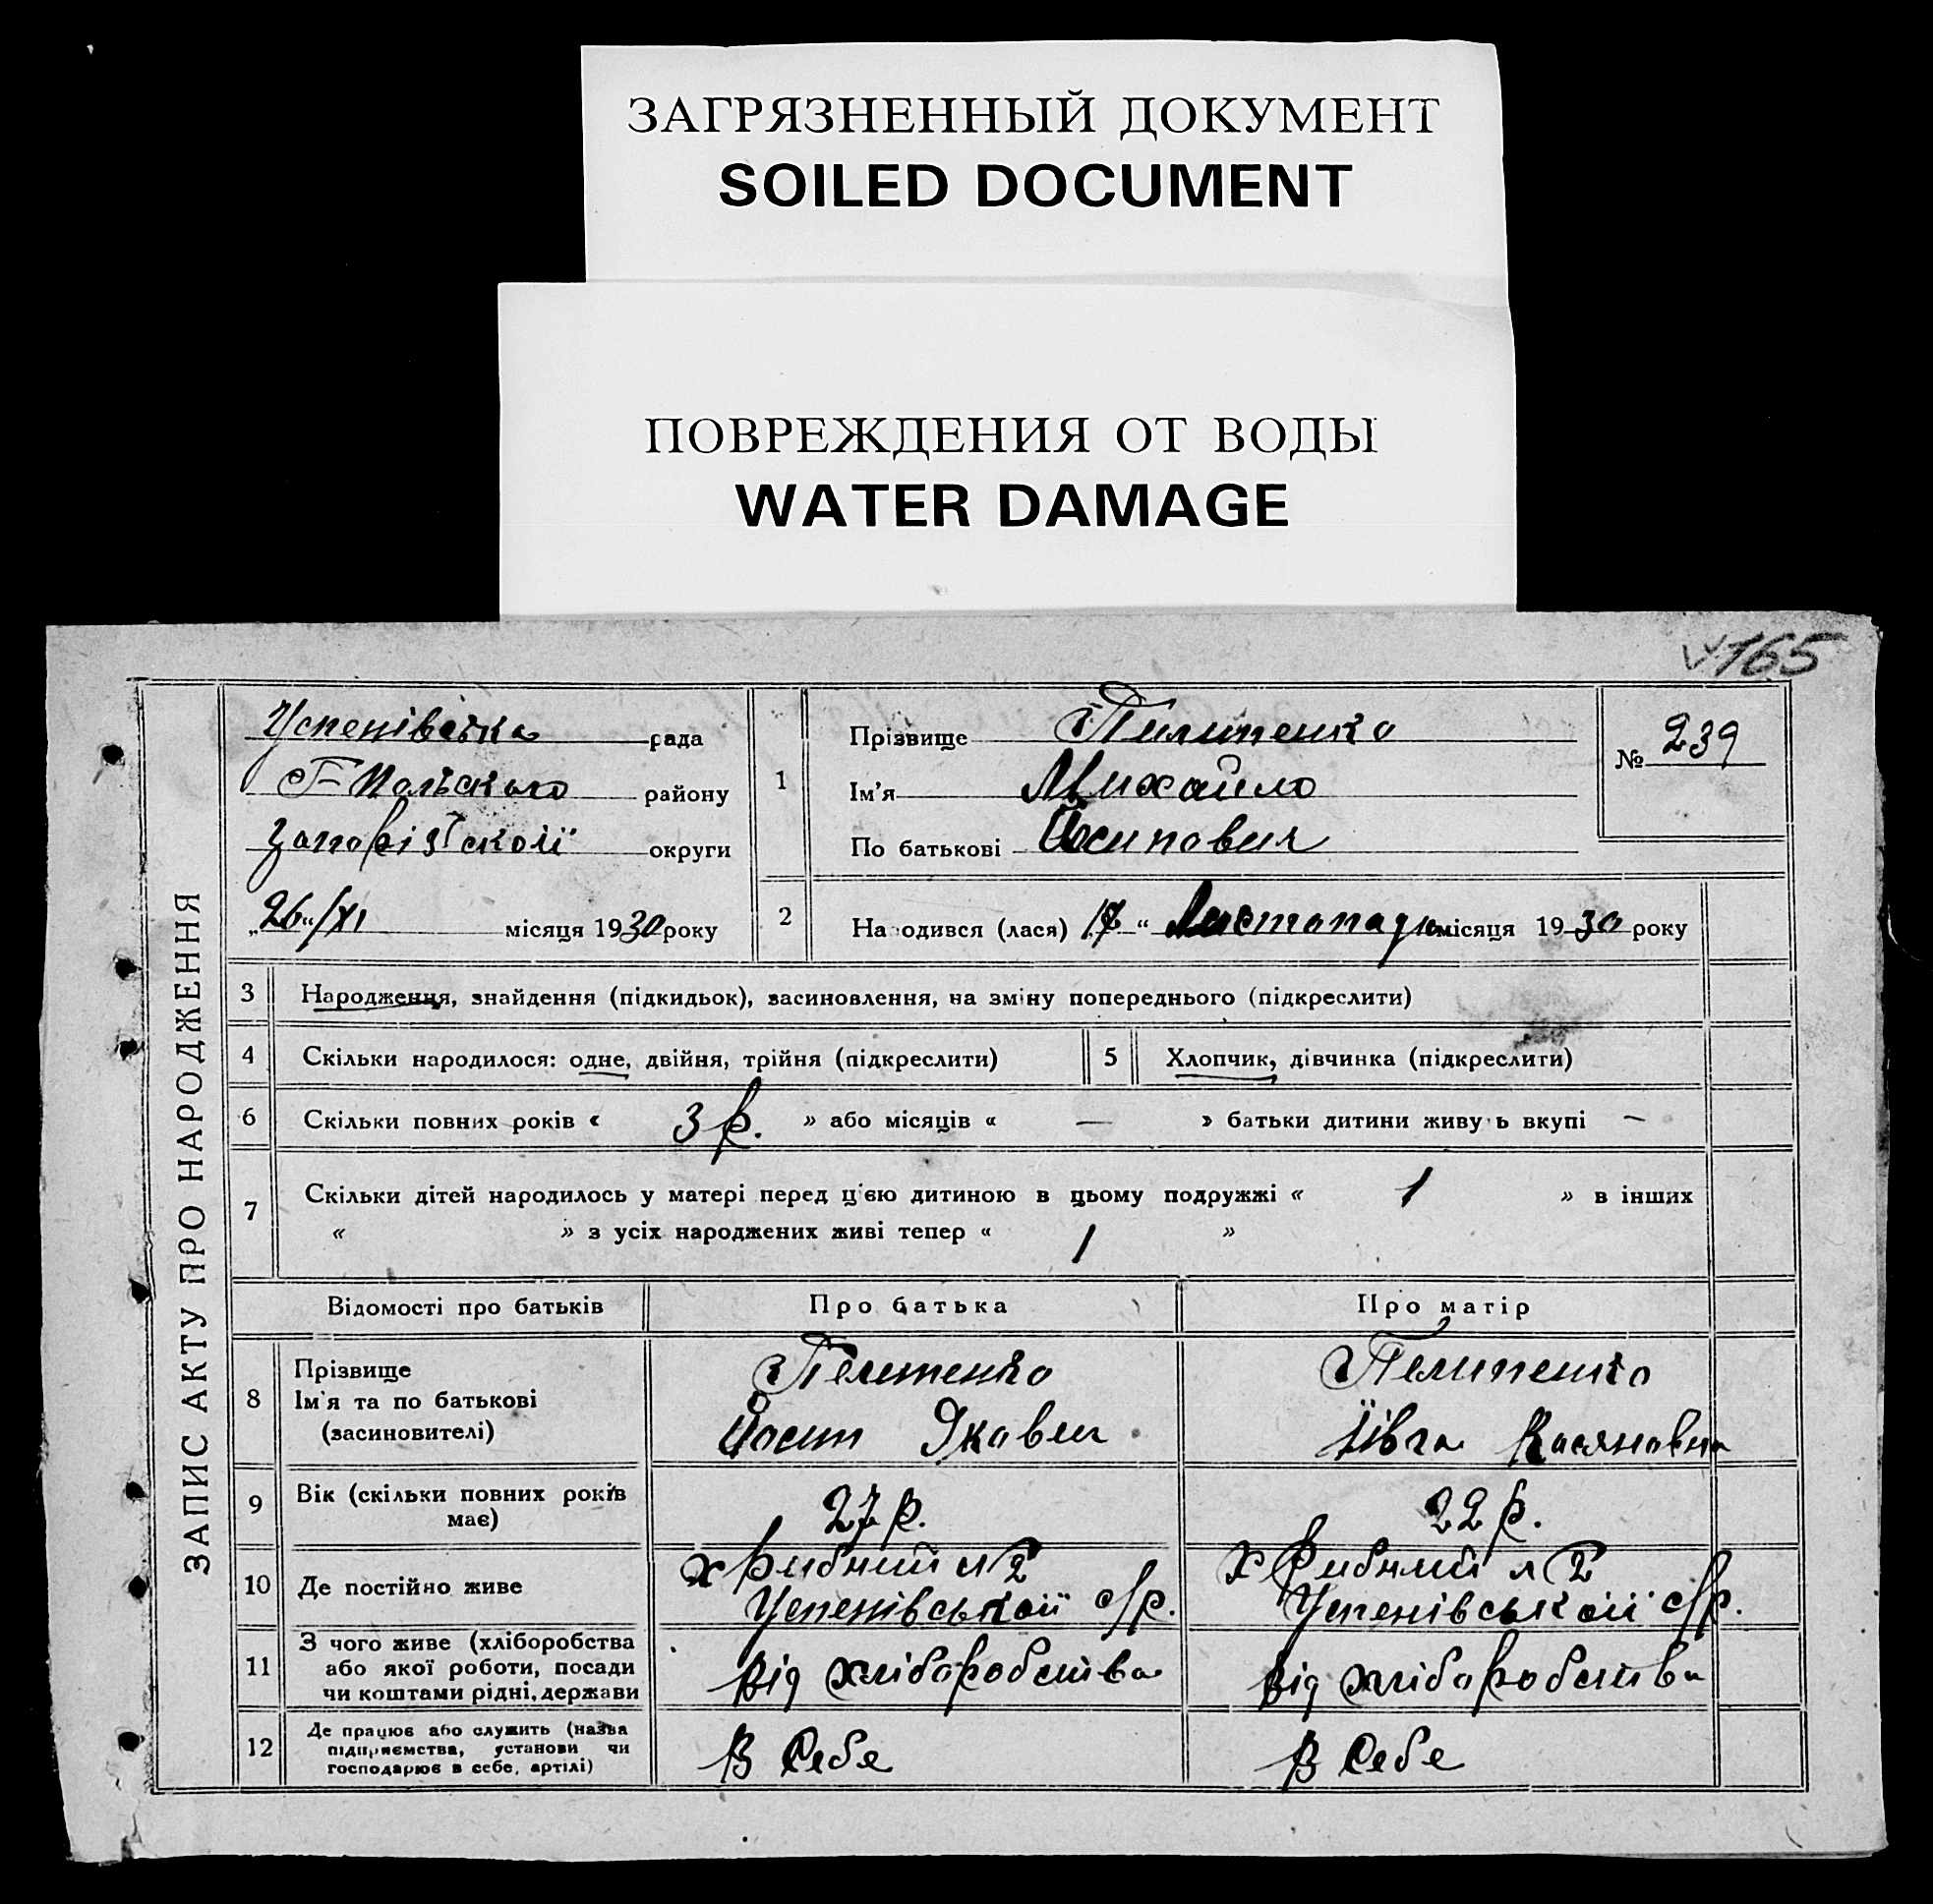 ЗАГРЯЗНЕННЫЙ ДОКУМЕНТ
SOILED DOCUMENT
ПОВРЕЖДЕНИЯ ОТ ВОДЫ
WATER DAMAGE
165
ЗАПИС АКТУ ПРО НАРОДЖЕННЯ
Успенівська рада
Г-Польського району
Запорізської округи
„26“/XI місяця 1930 року
1
Прізвище Пилипенко
Ім'я Михайло
По батькові Йосипович
№ 239
2
Народився (лася) 17 “ Листопада місяця 1930 року
3 Народження, знайдення (підкидьок), засиновлення, на зміну попереднього (підкреслити)
4 Скільки народилося: одне, двійня, трійня (підкреслити) 5 Хлопчик, дівчинка (підкреслити)
6 Скільки повних років « 3 р. » або місяців « — » батьки дитини живуть вкупі —
7 Скільки дітей народилось у матері перед цією дитиною в цьому подружжі « 1 » в інших
« » з усіх народжених живі тепер « 1 »
Відомості про батьків Про батька Про матір
8 Прізвище
Ім'я та по батькові
(засиновителі)
Пелипенко
Йосип Якович
Пелипенко
Ївга Касяновна
9 Вік (скільки повних років
має)
27 р. 22 р.
10 Де постійно живе
х Рибний №2
Успенівської с/р.
х Рибний №2
Успенівської с/р.
11 З чого живе (хліборобства
або якої роботи, посади
чи коштами рідні, держави
від хліборобства від хліборобства
12 Де працює або служить (назва
підприємства, установи чи
господарює в себе, артілі)
В себе В себе